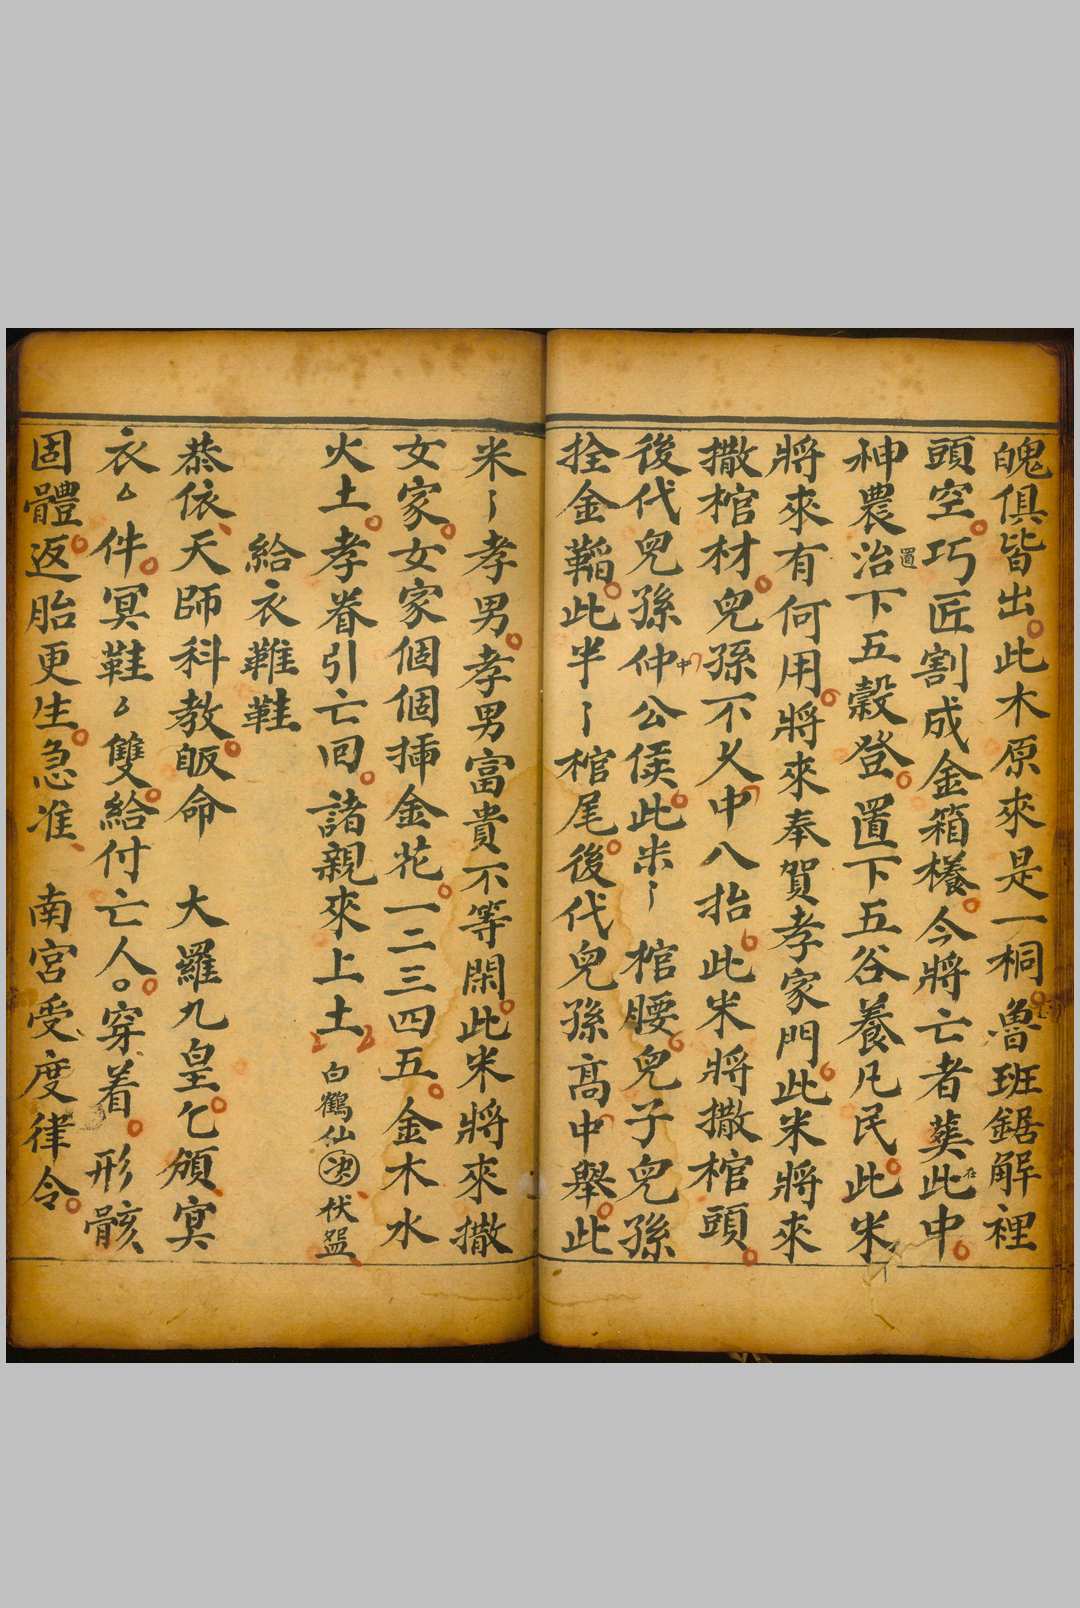 魄俱皆出此木原來是一桐魯班鋸解裡
頭空巧匠割成金箱櫃今將亡者葬此中
在
神農治下五穀登置下五谷養凡民此米
置
將來有何用將來奉賀孝家門此米將來
撒棺材兒孫不久中八抬此米將撒棺頭
後代兒孫仲公侯此米〻棺腰兒子兒孫
中
拴金鞱此半〻棺尾後代兒孫高中舉此
米〻孝男孝男富貴不等閑此米將來撒
女家女家個個揷金花一二三四五金木水
火土孝眷引亡回諸親來上土 白鶴仙 伏
給衣鞋鞋
恭依天師科教皈命 大羅九皇乞頒冥
衣 件冥鞋 雙給付亡人〇穿着形骸
固體返胎更生急准 南宮受度律令